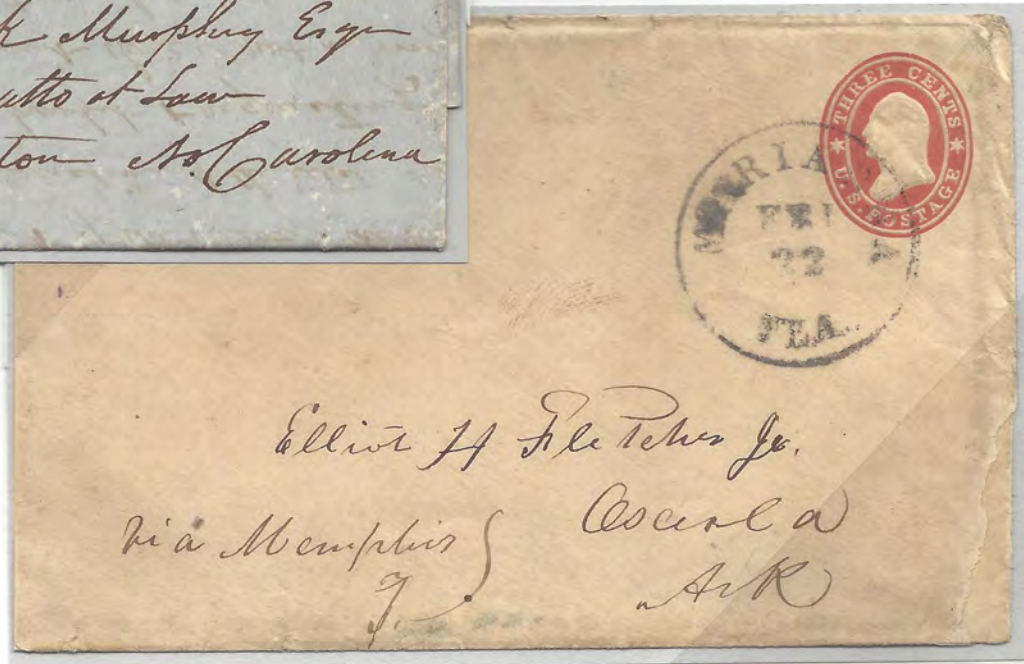 Murphy Esqr
at Law
ton No. Carolina
THREE CENTS
U.S. POSTAGE
MARIANNA
FEB
22
FLA.
Elliot H Fletcher Jr.
Osceola
Ark
via Memphis
T.